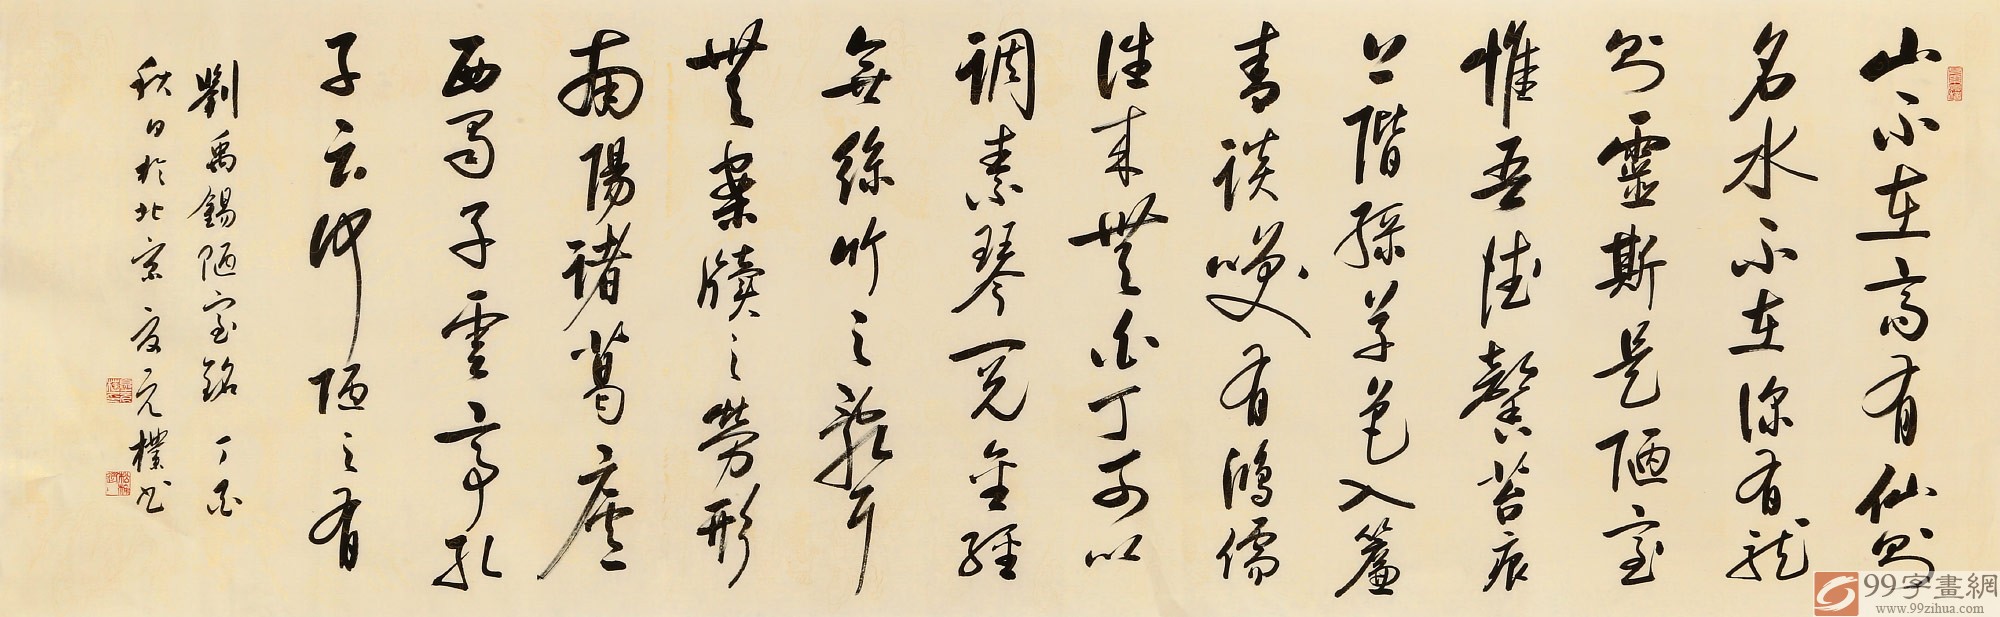 山不在高有仙則
名水不在深有龍
則靈斯是陋室
惟吾德馨苔痕
上階綠草色入簾
青談笑有鴻儒
往來無白丁可以
調素琴閱金經
無絲竹之亂耳
無案牘之勞形
南陽諸葛廬
西蜀子雲亭孔
子云何陋之有
劉禹錫陋室銘 丁酉
秋日於北京元樸書
99字畫網
www.99zihua.com